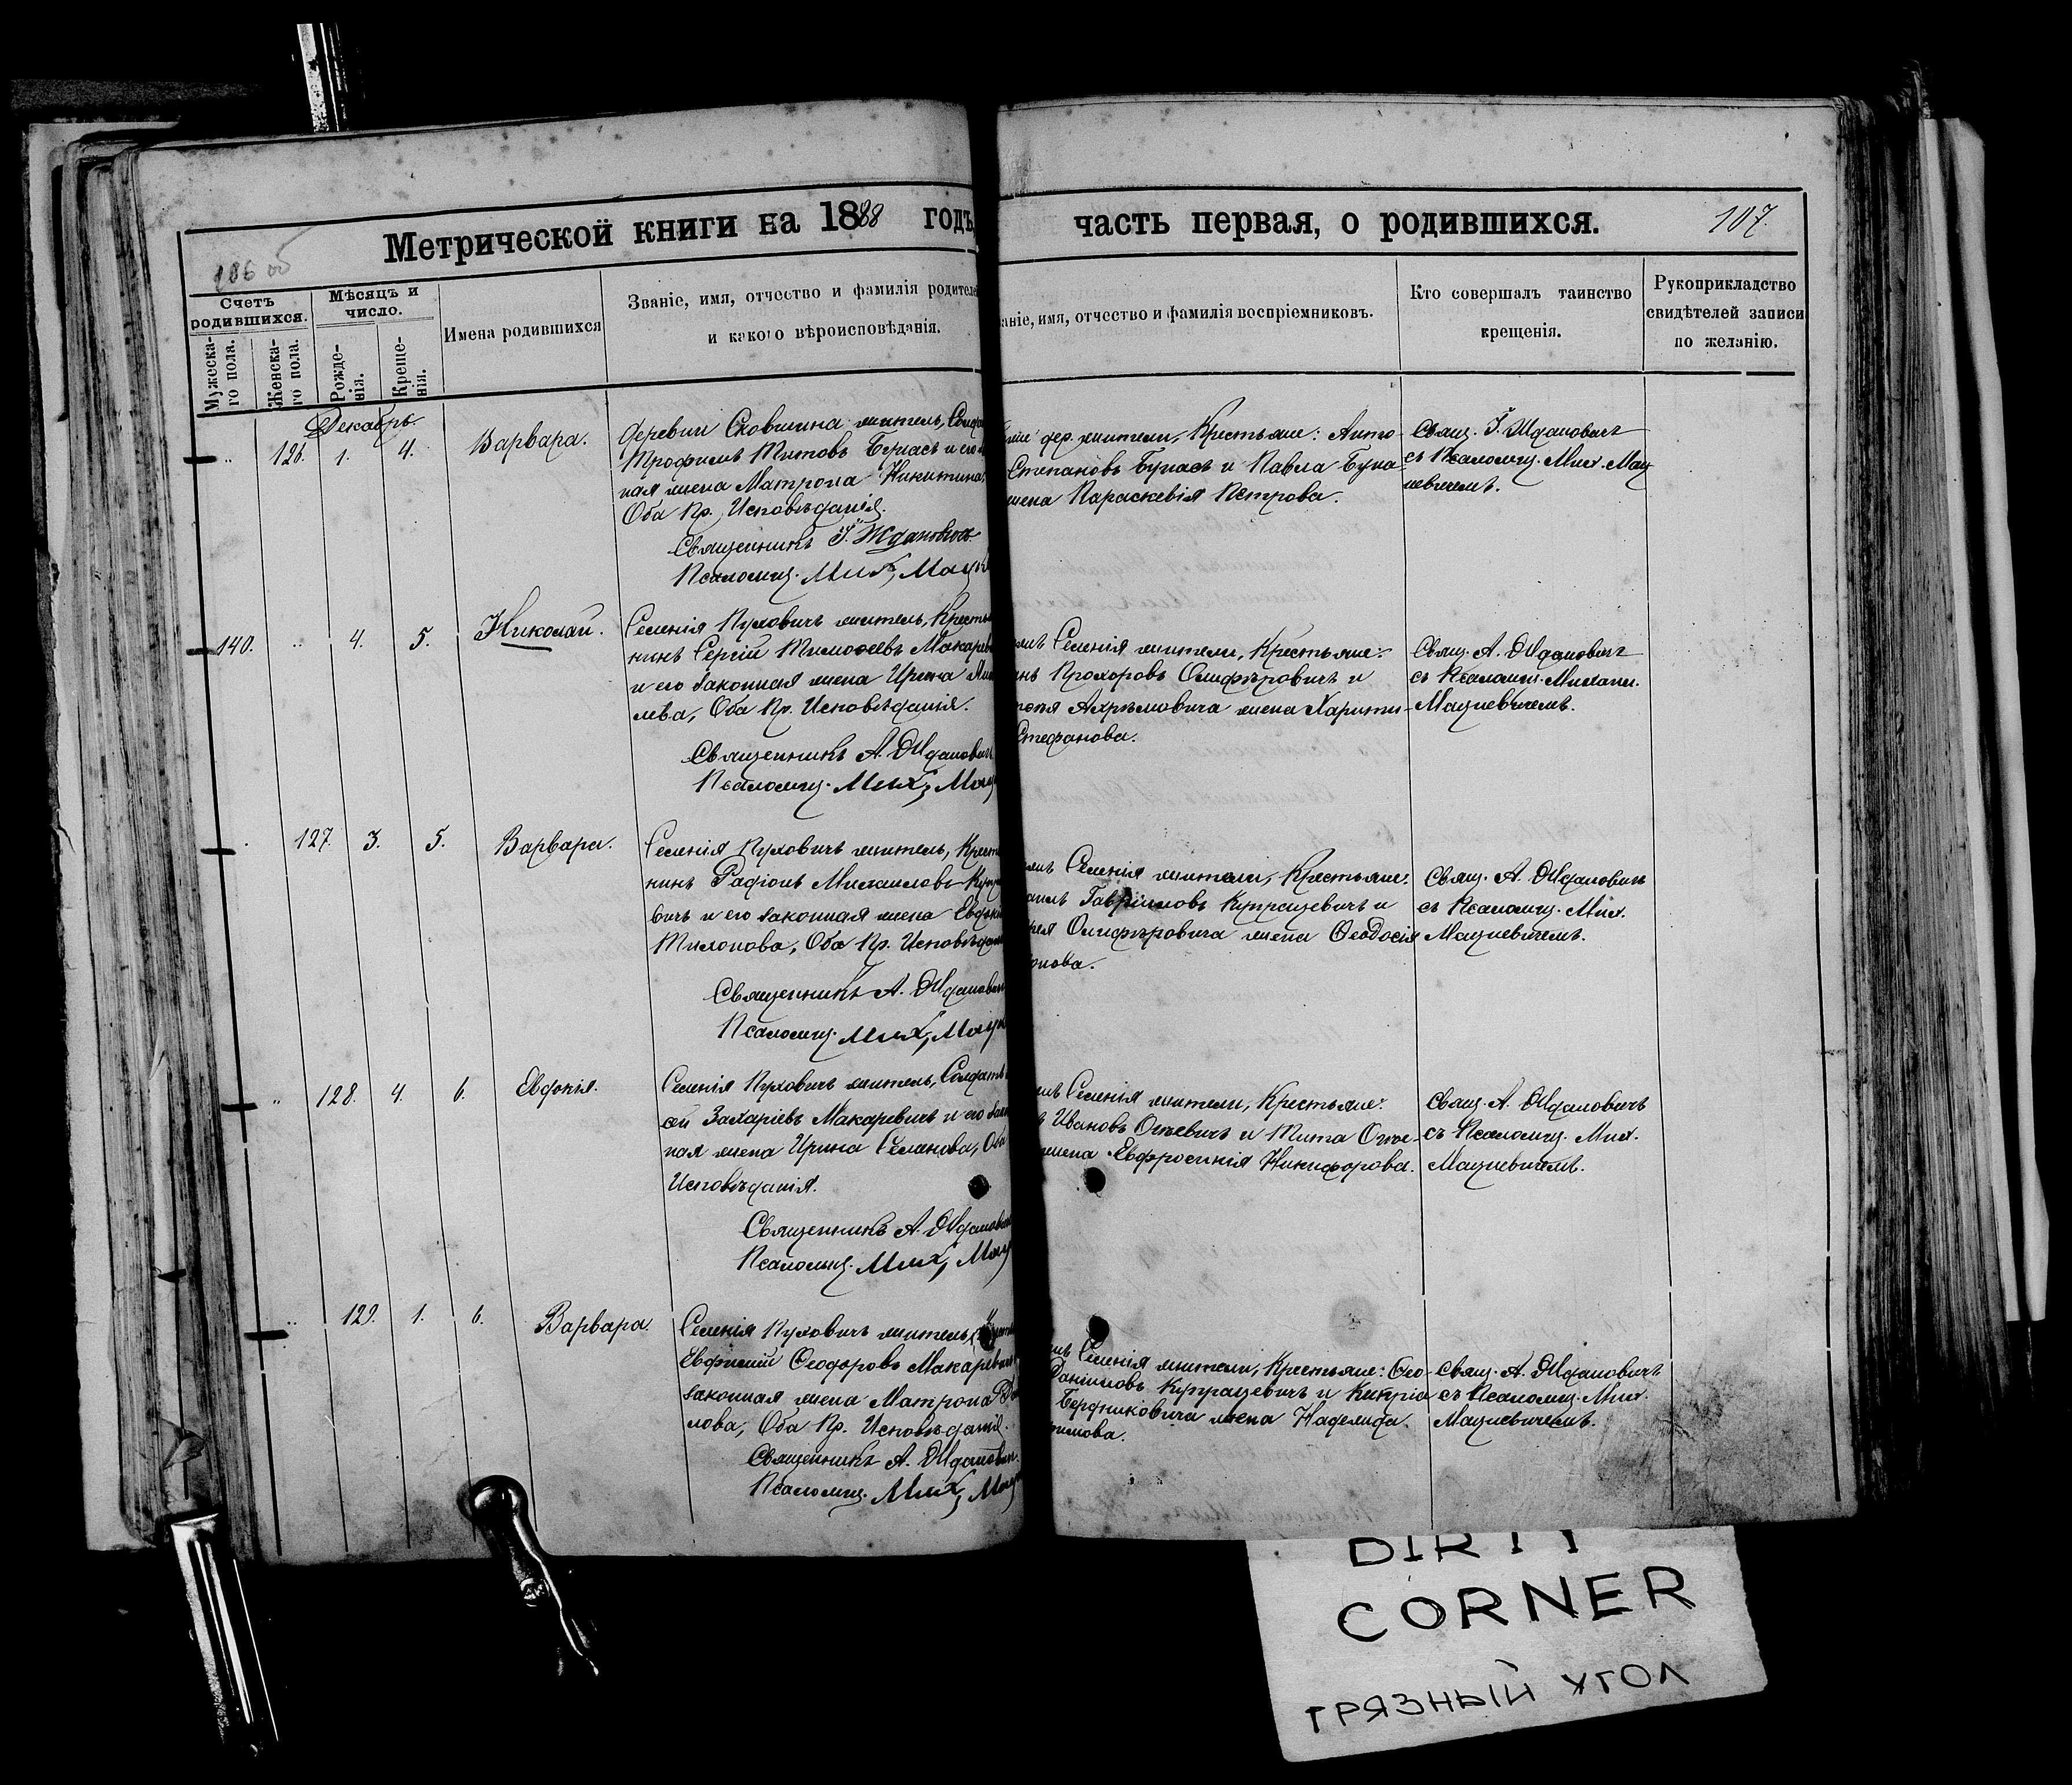 Метрической книги на 1888 годъ
часть первая, о родившихся.
107.
106 об
Счетъ родившихся.
Мужеска-
го пола.
Женска-
го пола.
Мѣсяцъ и число.
Рожде-
нія.
Креще-
нія.
Имена родившихся
Званіе, имя, отчество и фамилія родителе
и какого вѣроисповѣданія.
аніе, имя, отчество и фамилія воспріемниковъ.
Кто совершалъ таинство
крещенія.
Рукоприкладство
свидѣтелей записи
по желанію.
Декабрь.
126. 1. 4. Варвара.
Деревни житель,
Трофимъ Титовъ Бугасъ и
ная жена Матрона Никитина
Оба Пр. Исповѣданія.
Священникъ І. Ждановичъ
Псаломщ. Мих. Мац
дер. жители, Крестьяне: Анто-
Степановъ Бугасъ и Павла Буга-
жена Параскевія Петрова.
Свящ. І. Ждановичъ
съ Псаломщ. Мих. Мац
кевичемъ.
140. 4. 5. Николай.
Селенія Пуховичъ житель, Кресть
нинъ Сергій Тимоѳеевъ Макарев
и его законная жена Ирина
лева, Оба Пр. Исповѣданія.
Священникъ А. Ждановичъ
Псаломщ. Мих. Мац
Селенія жители, Крестьяне:
Прохоровъ Олиферовичъ и
Ахремовича жена Харити-
Стефанова.
Свящ. А. Ждановичъ
съ Псаломщ. Михаил.
Мацкевичемъ.
127. 3. 5. Варвара.
Селенія Пуховичъ житель, Крест
нинъ Радіонъ Михаиловъ Купр
вичъ и его законная жена Евдок
Тихонова, Оба Пр. Исповѣдан
Священникъ А. Ждановичъ
Псаломщ. Мих. Мацк
Селенія жители, Крестьяне:
Гавріиловъ Купрацевичъ и
Олиферовича жена Ѳеодосія
Свящ. А. Ждановичъ
съ Псаломщ. Мих.
Мацкевичемъ.
128. 4. 6. Евдокія.
Селенія Пуховичъ житель, Солдатъ
сѣй Захаріевъ Макаревичъ и его зак
ная жена Ирина Семенова, Оба
Исповѣданія.
Священникъ А. Ждановичъ
Псаломщ. Мих. Мац
Селенія жители, Крестьяне:
Ивановъ и Тита
жена Евфросинія Никифорова.
Свящ. А. Ждановичъ
съ Псаломщ. Мих.
Мацкевичемъ.
129. 1. 6. Варвара.
Селенія Пуховичъ житель,
Евфимій Ѳеодоровъ Макаревичъ
законная жена Матрона
лова, Оба Пр. Исповѣданія.
Священникъ А. Ждановичъ
Псаломщ. Мих. Мац
Селенія жители, Крестьяне: Ѳео-
Даніиловъ Купрацевичъ и Кипріа
Бердниковича жена Надежда
Свящ. А. Ждановичъ
съ Псаломщ. Мих.
Мацкевичемъ.
DIRTY
CORNER
ГРЯЗНЫЙ УГОЛ